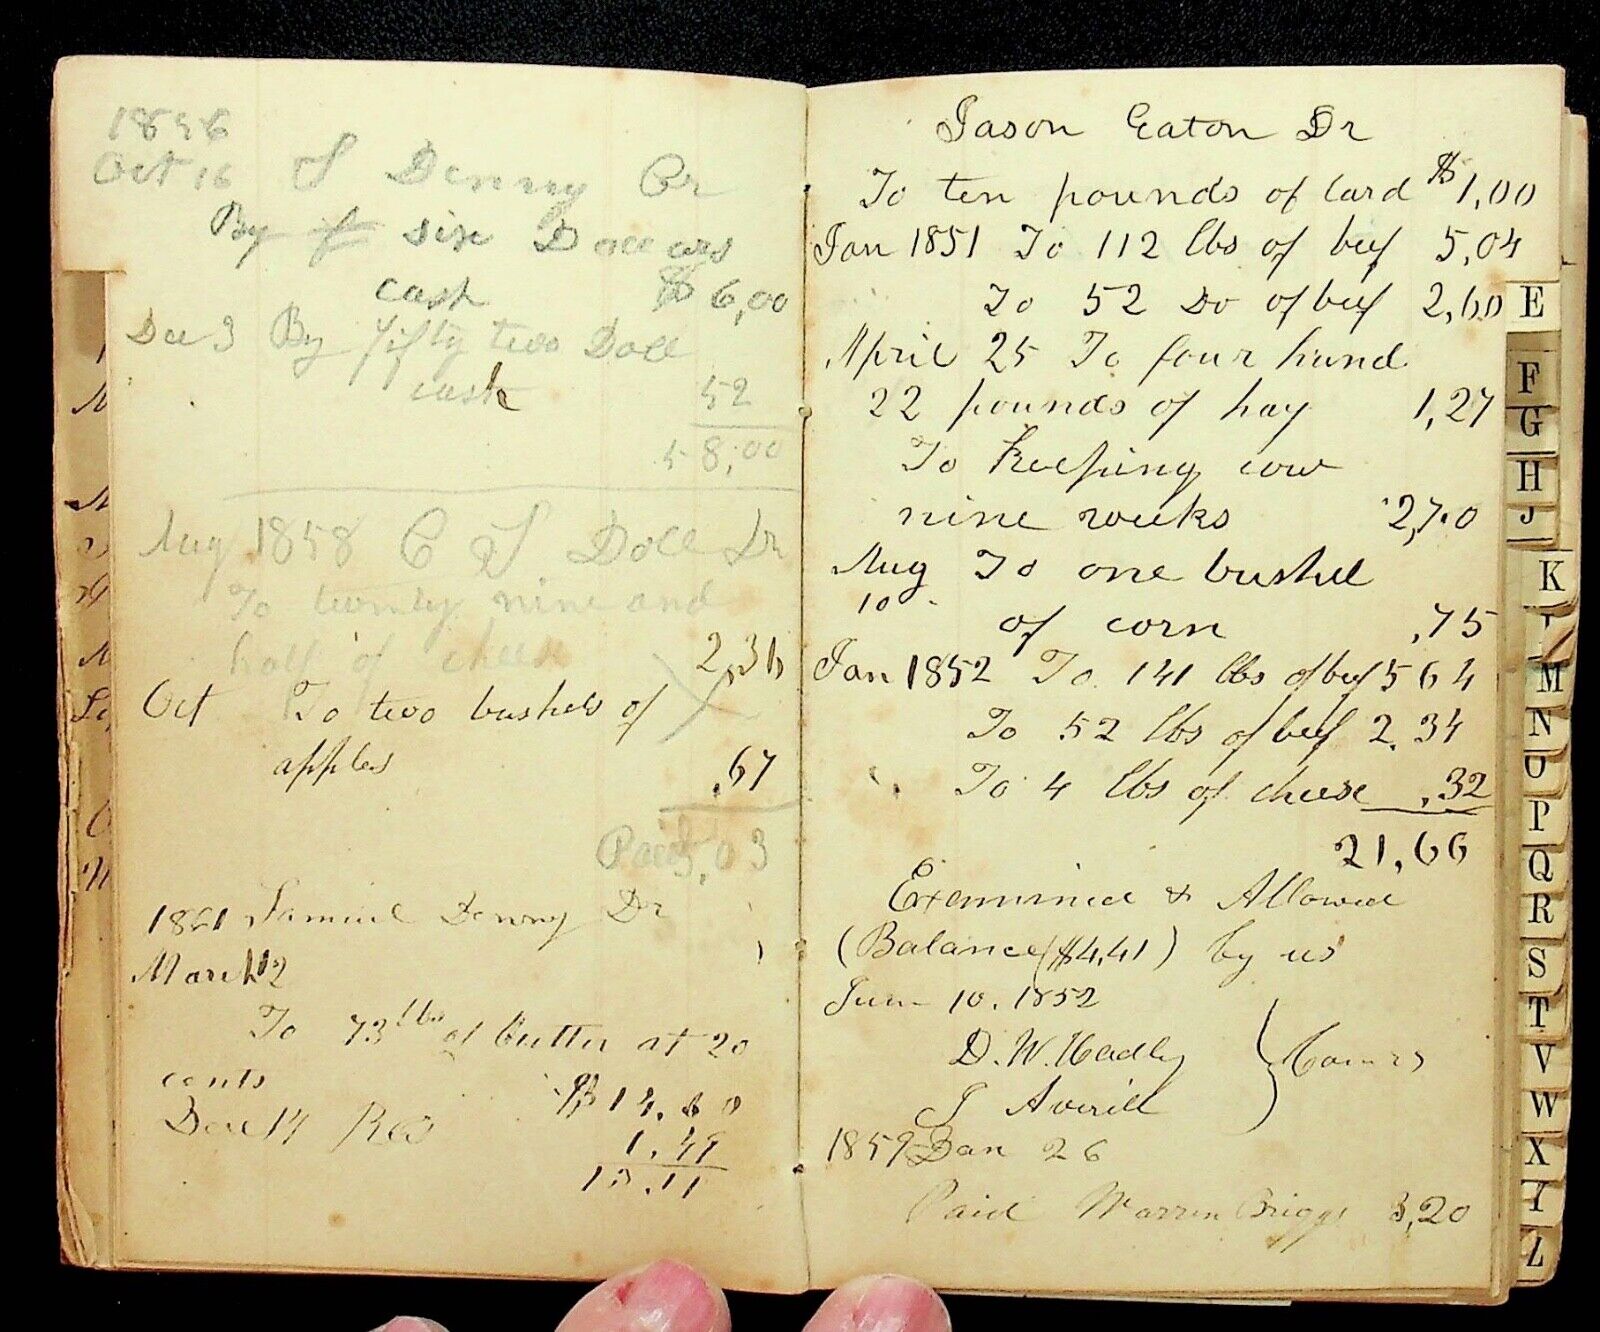 1856
Oct 16 S Denny Cr
By six Dollars
cash $6,00
Dec 3 By fifty two Doll
cash 52
58,00
Aug 1858 C S Doll Dr
To twenty nine and
half of cheese 2,36
Oct To two bushels of
apples ,67
Paid 3,03
1861 Samuel Denny Dr
March 12
To 73 lbs of butter at 20
cents $14.60
Dec 14 Rec 1.49
13.11
Jason Eaton Dr
To ten pounds of lard $1,00
Jan 1851 To 112 lbs of beef 5,04
To 52 Do of beef 2,60
April 25 To four hund
22 pounds of hay 1,27
To Keeping cow
nine weeks 2,70
Aug To one bushel
10
of corn ,75
Jan 1852 To 141 lbs of beef 5 64
To 52 lbs of beef 2.34
To 4 lbs of cheese ,32
21,66
Exammined & Allowed
(Balance ($4,41) by us
June 10. 1852
D. W. Hadley
J Averill
1859 Jan 26
Paid Warren Briggs 3,20
E
F
G
H
J
K
L
M
N
O
P
Q
R
S
T
V
W
X
Y
Z